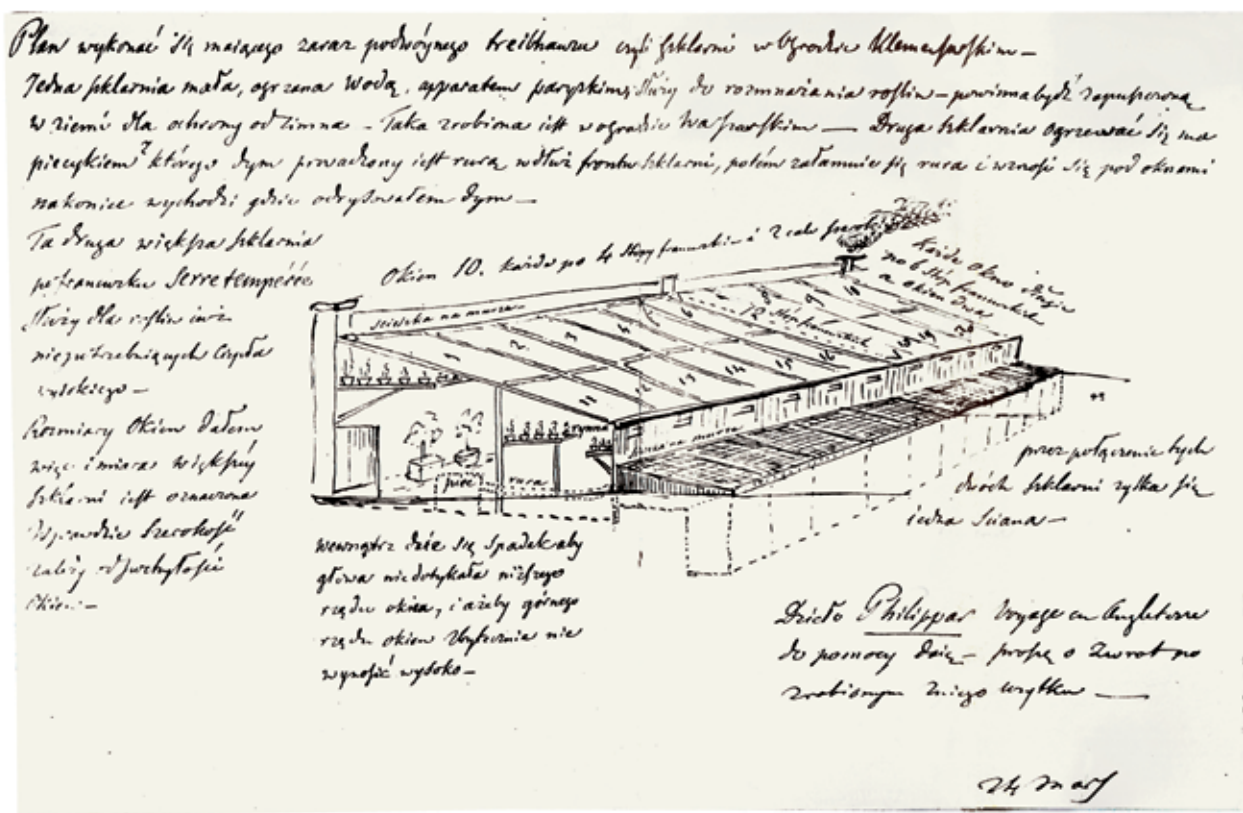 Plan wykonać się maiącego zaraz podwóynego treibhauzu czyli szklarni w Ogrodzie Klemensowskim —
Jedna szklarnia mała, ogrzana Wodą, apparatem paryskim, służy do rozmnażania roślin — powinna bydź zapuszczoną
w ziemi dla ochrony od Zimna — Taka zrobiona iest w ogrodzie Warszawskim — Druga szklarnia ogrzewać się ma
piecykiem którego dym prowadzony iest rurą wdłuż frontu szklarni, potém załamuie się rura i wznosi się pod oknami
nakoniec wychodzi gdzie odrysowałem dym —
Ta druga większa szklarnia
po francuzku Serre tempérée
służy dla roślin iuż
niepotrzebuiących Ciepła
wysokiego —
Rozmiary Okien dałem
więc i miara większéy
szklarni iest oznaczona
Wprawdzie Szerokość
zależy od pochyłości
Okien —
Okien 10. każde po 4 stopy francuzkie i 2 cale
Każde okno długie
na 6 stóp francuzkich
a okien dwa
ścieżka na murze
1 2. 3 4 6 8 9 10
12 stóp francuzkich
11 12 13 14 15 16 18 19 20
rynna
piec rura
przez połączenie tych
dwóch szklarni zyska się
iedna Sciana —
wewnątrz daie się Spadek aby
głowa niedotykała niższego
rzędu okien, i ażeby górnego
rzędu okien Zbytecznie nie
wynosić wysoko —
Dzieło Philippar Voyage en Angleterre
do pomocy daię — proszę o Zwrot po
zrobionym z niego użytku —
24 Mars